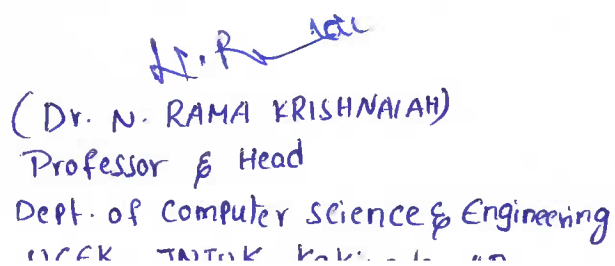 (Dr. N. RAMA KRISHNAIAH)
Professor & Head
Dept. of Computer Science & Engineering
UCEK JNTUK